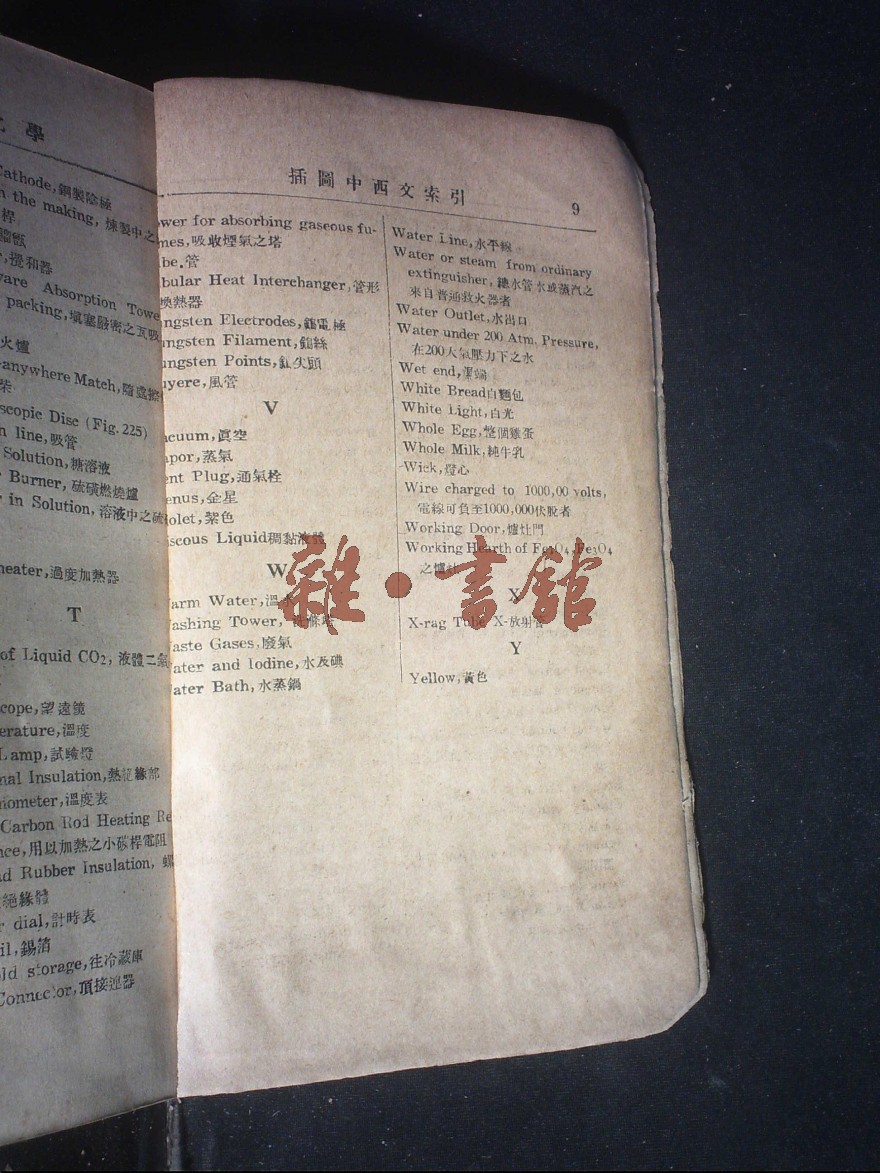 學
Cathode,銅製陰極
the making, 煉製中之
桿
,攪和器
ware Absorption Towe
packing,填塞嚴密之瓦吸
火爐
-anywhere Match,隨處擦
柴
scopic Disc (Fig. 225)
n line,吸管
Solution,糖溶液
Burner, 硫磺燃燒爐
in Solution, 溶液中之硫
heater,過度加熱器
T
of Liquid CO2, 液體二氧
cope,望遠鏡
erature,溫度
Lamp,試驗燈
nal Insulation,熱絕緣部
nometer,溫度表
Carbon Rod Heating Re
nce,用以加熱之小碳桿電阻
ad Rubber Insulation,
絕緣體
r dial,計時表
il,錫箔
old storage,往冷藏庫
Connector,頂接連器
插圖中西文索引
9
ower for absorbing gaseous fu-
mes,吸收煙氣之塔
be,管
bular Heat Interchanger,管形
換熱器
ngsten Electrodes,鎢電極
ungsten Filament,鎢絲
ungsten Points,尖頭
uyere,風管
V
acuum,眞空
apor,蒸氣
ent Plug,通氣栓
enus,金星
iolet,紫色
iscous Liquid稠黏液體
W
arm Water,溫水
ashing Tower,
aste Gases,廢氣
ater and Iodine,水及碘
ater Bath,水蒸鍋
Water Line,水平線
Water or steam from ordinary
extinguisher, 總水管水或蒸汽之
來自普通救火器者
Water Outlet,水出口
Water under 200 Atm. Pressure,
在200大氣壓力下之水
Wet end,濕端
White Bread白麵包
White Light,白光
Whole Egg,整個雞蛋
Whole Milk,純牛乳
Wick,燈心
Wire charged to 1000,00 volts,
電線可負至1000,000伏脫者
Working Door,爐灶門
Working Hearth of Fe3O4,Fe3O4
之爐灶
X
X-rag Tube, X-放射管
Y
Yellow,黃色
雜·書館